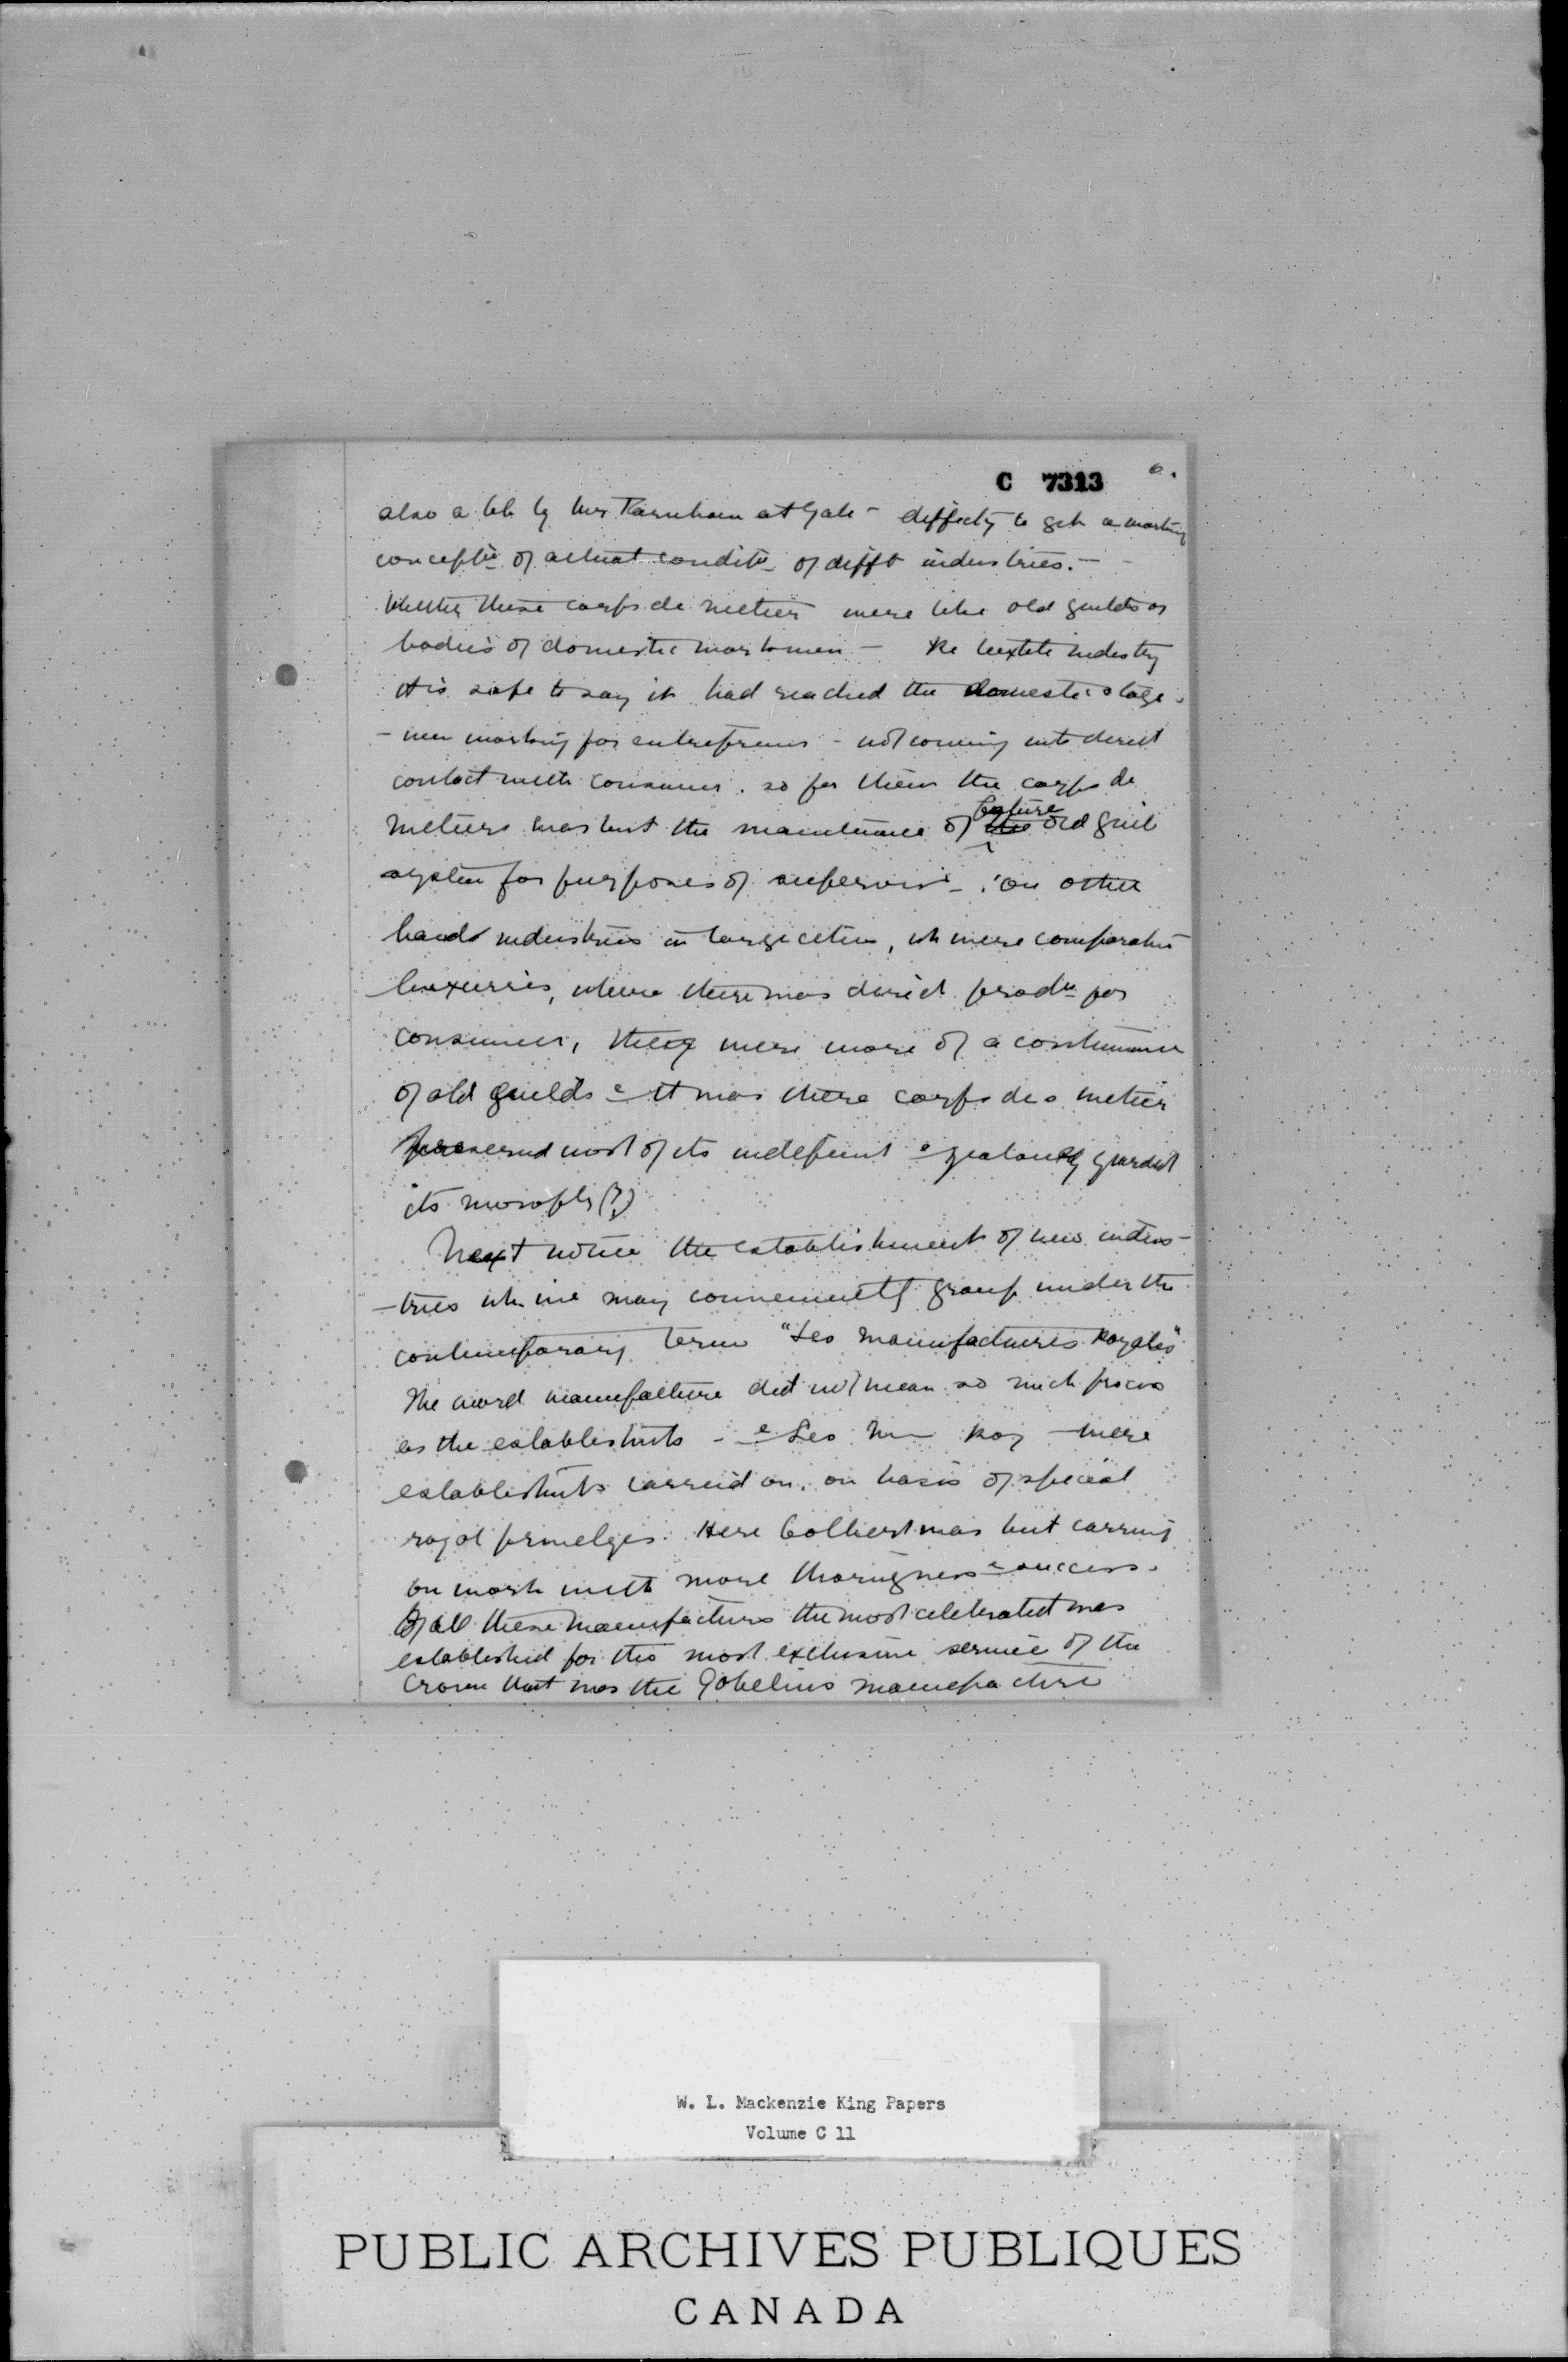 C 7313
6.
also a bk by Mr Farnham at Yale - difficty to get a working
conceptn of actual conditn of difft industries. -
Whether these corps de metier were like old guilds or
bodies of domestic workmen - Re textile industry
it is safe to say it had reached the domestic stage.
- men working for entrepreneurs - not coming into direct
contact with consumer. so for them the corps de
metiers was but the maintenance of the feature old guild
system for purposes of supervisn - on other
hand industries in large cities, wh were comparative
luxuries, where there was direct prodn for
consumer, they were more of a continuance
of old guilds & it was there corps des metier
preserved most of its indepent & zealously guarded
its monoply (?)
Next notice the establishment of new indus-
-tries wh we may conveniently group under the
contemporary term "Les Manufactures Royales"
The word manufacture did not mean so much process
as the establishmts - & Les M Roy were
establishmts carried on, on basis of special
royal privelges. Here Colbert was but carrying
on work with more thorughness & success.
Of all these manufactures the most celebrated was
established for the most exclusive service of the
Crown that was the Gobelins manufacture
W. L. Mackenzie King Papers
Volume C 11
PUBLIC ARCHIVES PUBLIQUES
CANADA